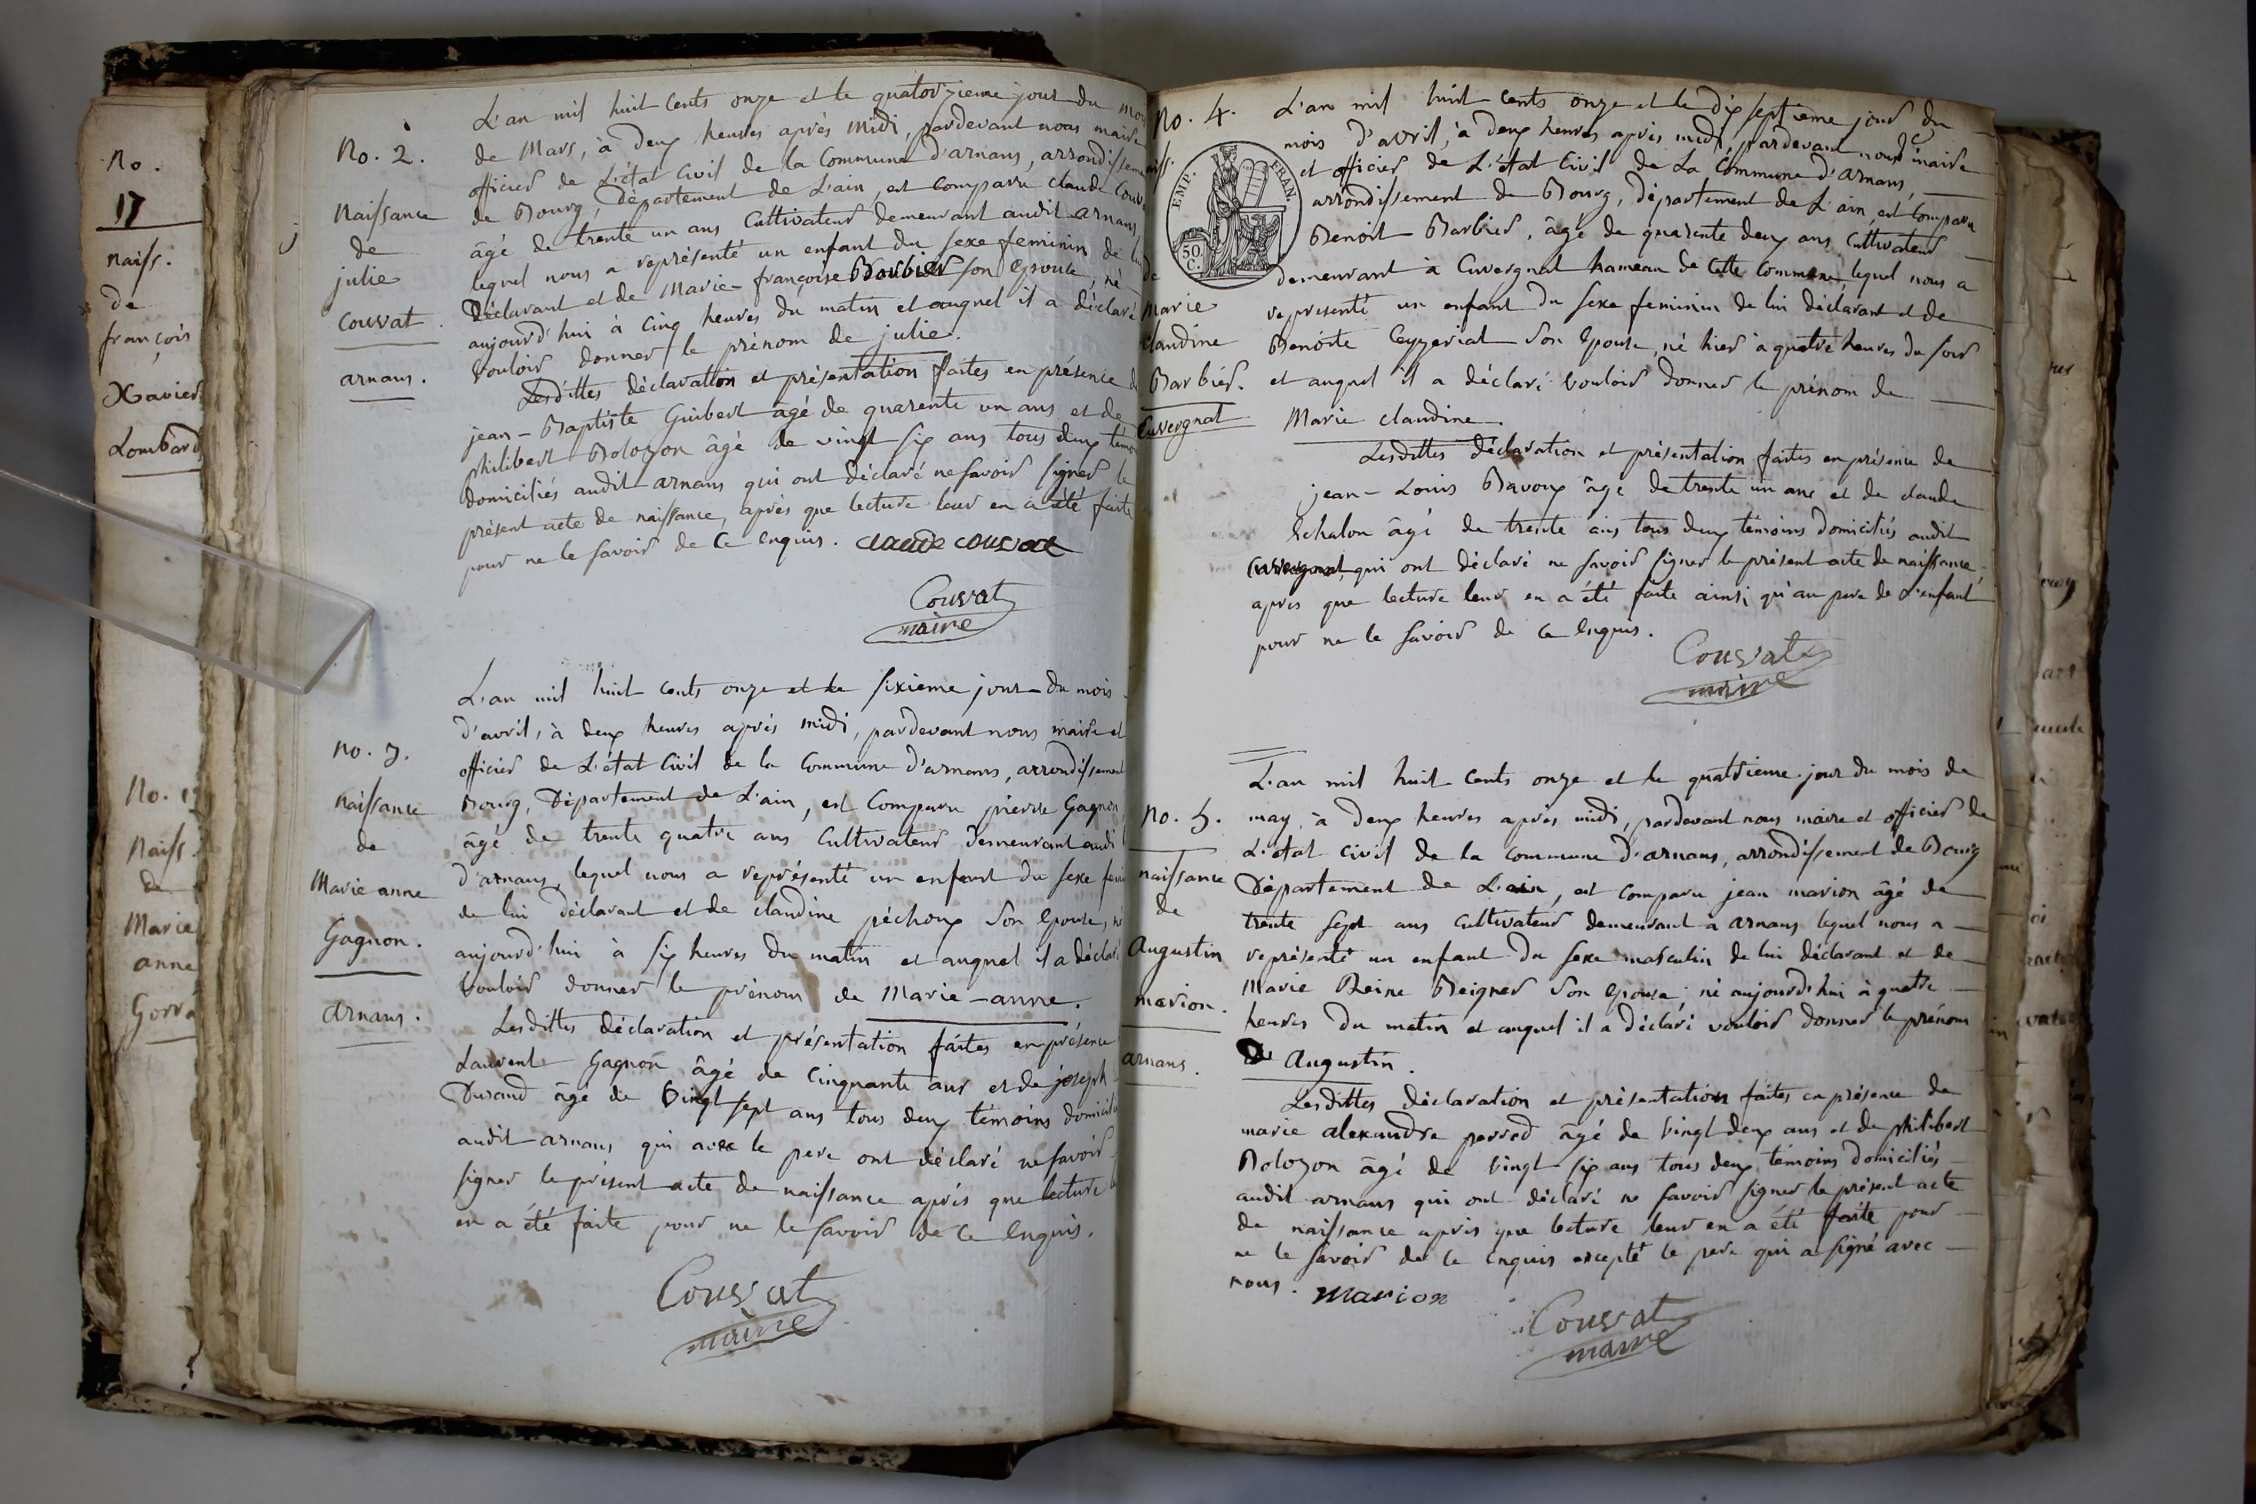 No.
17
naiss.
de
françois
Xavier
Lombard
No. 19
Naiss.
de
Marie
anne
No. 2.
Naissance
de
julie
Couvat.
arnans.
L'an mil huit Cents onze et le quatorzieme jour du mois
de Mars, à deux heures après midi, pardevant nous maire
officier de L'état Civil de la Commune d'arnans, arrondisseme
de Bourg, Département de L'ain, est Comparu claude Couv
âgé de trente un ans Cultivateur demeurant audit arnans,
lequel nous a représenté un enfant du sexe feminin de lui
Déclarant et de Marie-françoise Barbier son épouse, né
aujourd'hui à Cinq heures du matin et auquel il a déclaré
Vouloir donner le prénom de julie.
Lesdittes déclaration et présentation faites en présence de
jean-Baptiste Guibert âgé de quarente un ans et de
Philibert Bolozon âgé de vingt six ans tous deux témoi
Domiciliés audit arnans qui ont déclaré ne Savoir Signer le
présent acte de naissance, après que lecture leur en a été faite
pour ne le Savoir de Ce enquis. claude couvat
Couvat
maire
No. 3.
naissance
de
Marie anne
Gagnon.
arnans.
L'an mil huit cents onze et le sixieme jour du mois
d'avril, à deux heures après midi, pardevant nous maire et
officier de L'état Civil de la Commune d'arnans, arrondissement
Bourg, Département de L'ain, est Comparu pierre Gagnon
âgé de trente quatre ans Cultivateur Demeurant audi
d'arnans, lequel nous a représenté un enfant du sexe femi
de lui déclarant et de claudine péchoux Son épouse, né
aujourd'hui à six heures du matin et auquel il a déclaré
Vouloir donner le prénom de Marie-anne.
Lesdittes déclaration et présentation faites en présence
Laurent Gagnon âgé de Cinquante ans et de joseph
Durand âgé de Vingt sept ans tous deux témoins domicilié
audit arnans qui avec le pere ont déclaré ne Savoir
signer le présent acte de naissance après que lecture
en a été faite pour ne le Savoir de Ce enquis.
Couvat
maire
No. 4.
naiss.
EMP. FRAN.
50.
C.
de
Marie
claudine
Barbier.
Cuvergnat
L'an mil huit Cents onze et le Dix septieme jour du
mois d'avril, à deux heures après midi, pardevant nous maire
et officier de L'état Civil de La Commune d'arnans,
arrondissement de Bourg, Département de L'ain, est Comparu
Benoit Barbier, âgé de quarente deux ans Cultivateur
demeurant à Cuvergnat hameau de Cette Commune, lequel nous a
représenté un enfant du sexe feminin de lui déclarant et de
Benoite Ceyzeriat Son épouse, né hier à quatre heures du soir
et auquel il a déclaré Vouloir donner le prénom de
Marie claudine.
Lesdittes déclaration et présentation faites en présence de
jean-Louis Bavoux âgé de trente un ans et de claude
Echalon âgé de trente ans tous deux témoins domiciliés audit
Cuvergnat, qui ont déclaré ne Savoir signer le présent acte de naissance,
après que lecture leur en a été faite ainsi qu'au pere de L'enfant
pour ne le Savoir de Ce enquis.
Couvat
maire
No. 5.
naissance
de
Augustin
marion.
arnans.
L'an mil huit Cents onze et le quatrieme jour du mois de
may, à deux heures après midi, pardevant nous maire et officier de
L'état civil de la Commune d'arnans, arrondissement de Bourg
Département de L'ain, est comparu jean marion âgé de
trente sept ans Cultivateur demeurant à arnans lequel nous a
représenté un enfant du sexe masculin de lui déclarant et de
Marie Reine Beigner Son épouse, né aujourd'hui à quatre
heures du matin et auquel il a déclaré vouloir donner le prénom
de Augustin.
Lesdittes déclaration et présentation faites en présence de
marie alexandre perrod âgé de vingt deux ans et de philibert
Bolozon âgé de vingt six ans tous deux témoins domiciliés
audit arnans qui ont déclaré ne Savoir signer le présent acte
de naissance après que lecture leur en a été faite pour
ne le Savoir de Ce enquis excepté le pere qui a signé avec
nous. Marion
Couvat
maire